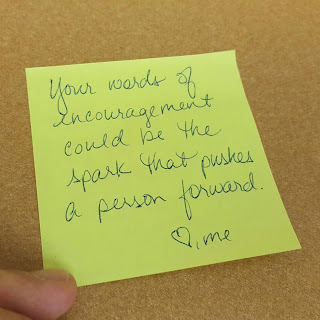 Your words of
encouragement
could be the
spark that pushes
a person forward.
♡, me